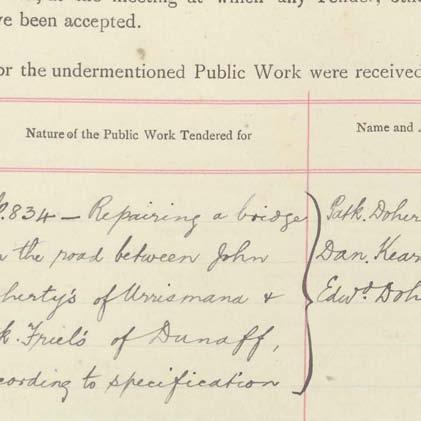 at the meeting at which any Tender,
ve been accepted.
or the undermentioned Public Work were received
Nature of the Public Work Tendered for
Name and
.834 — Repairing a bridge
n the road between John
herty's of Urrismana &
k. Friel's of Dunaff,
cording to specification
Patk. Doher
Dan. Kear
Edwd. Doh